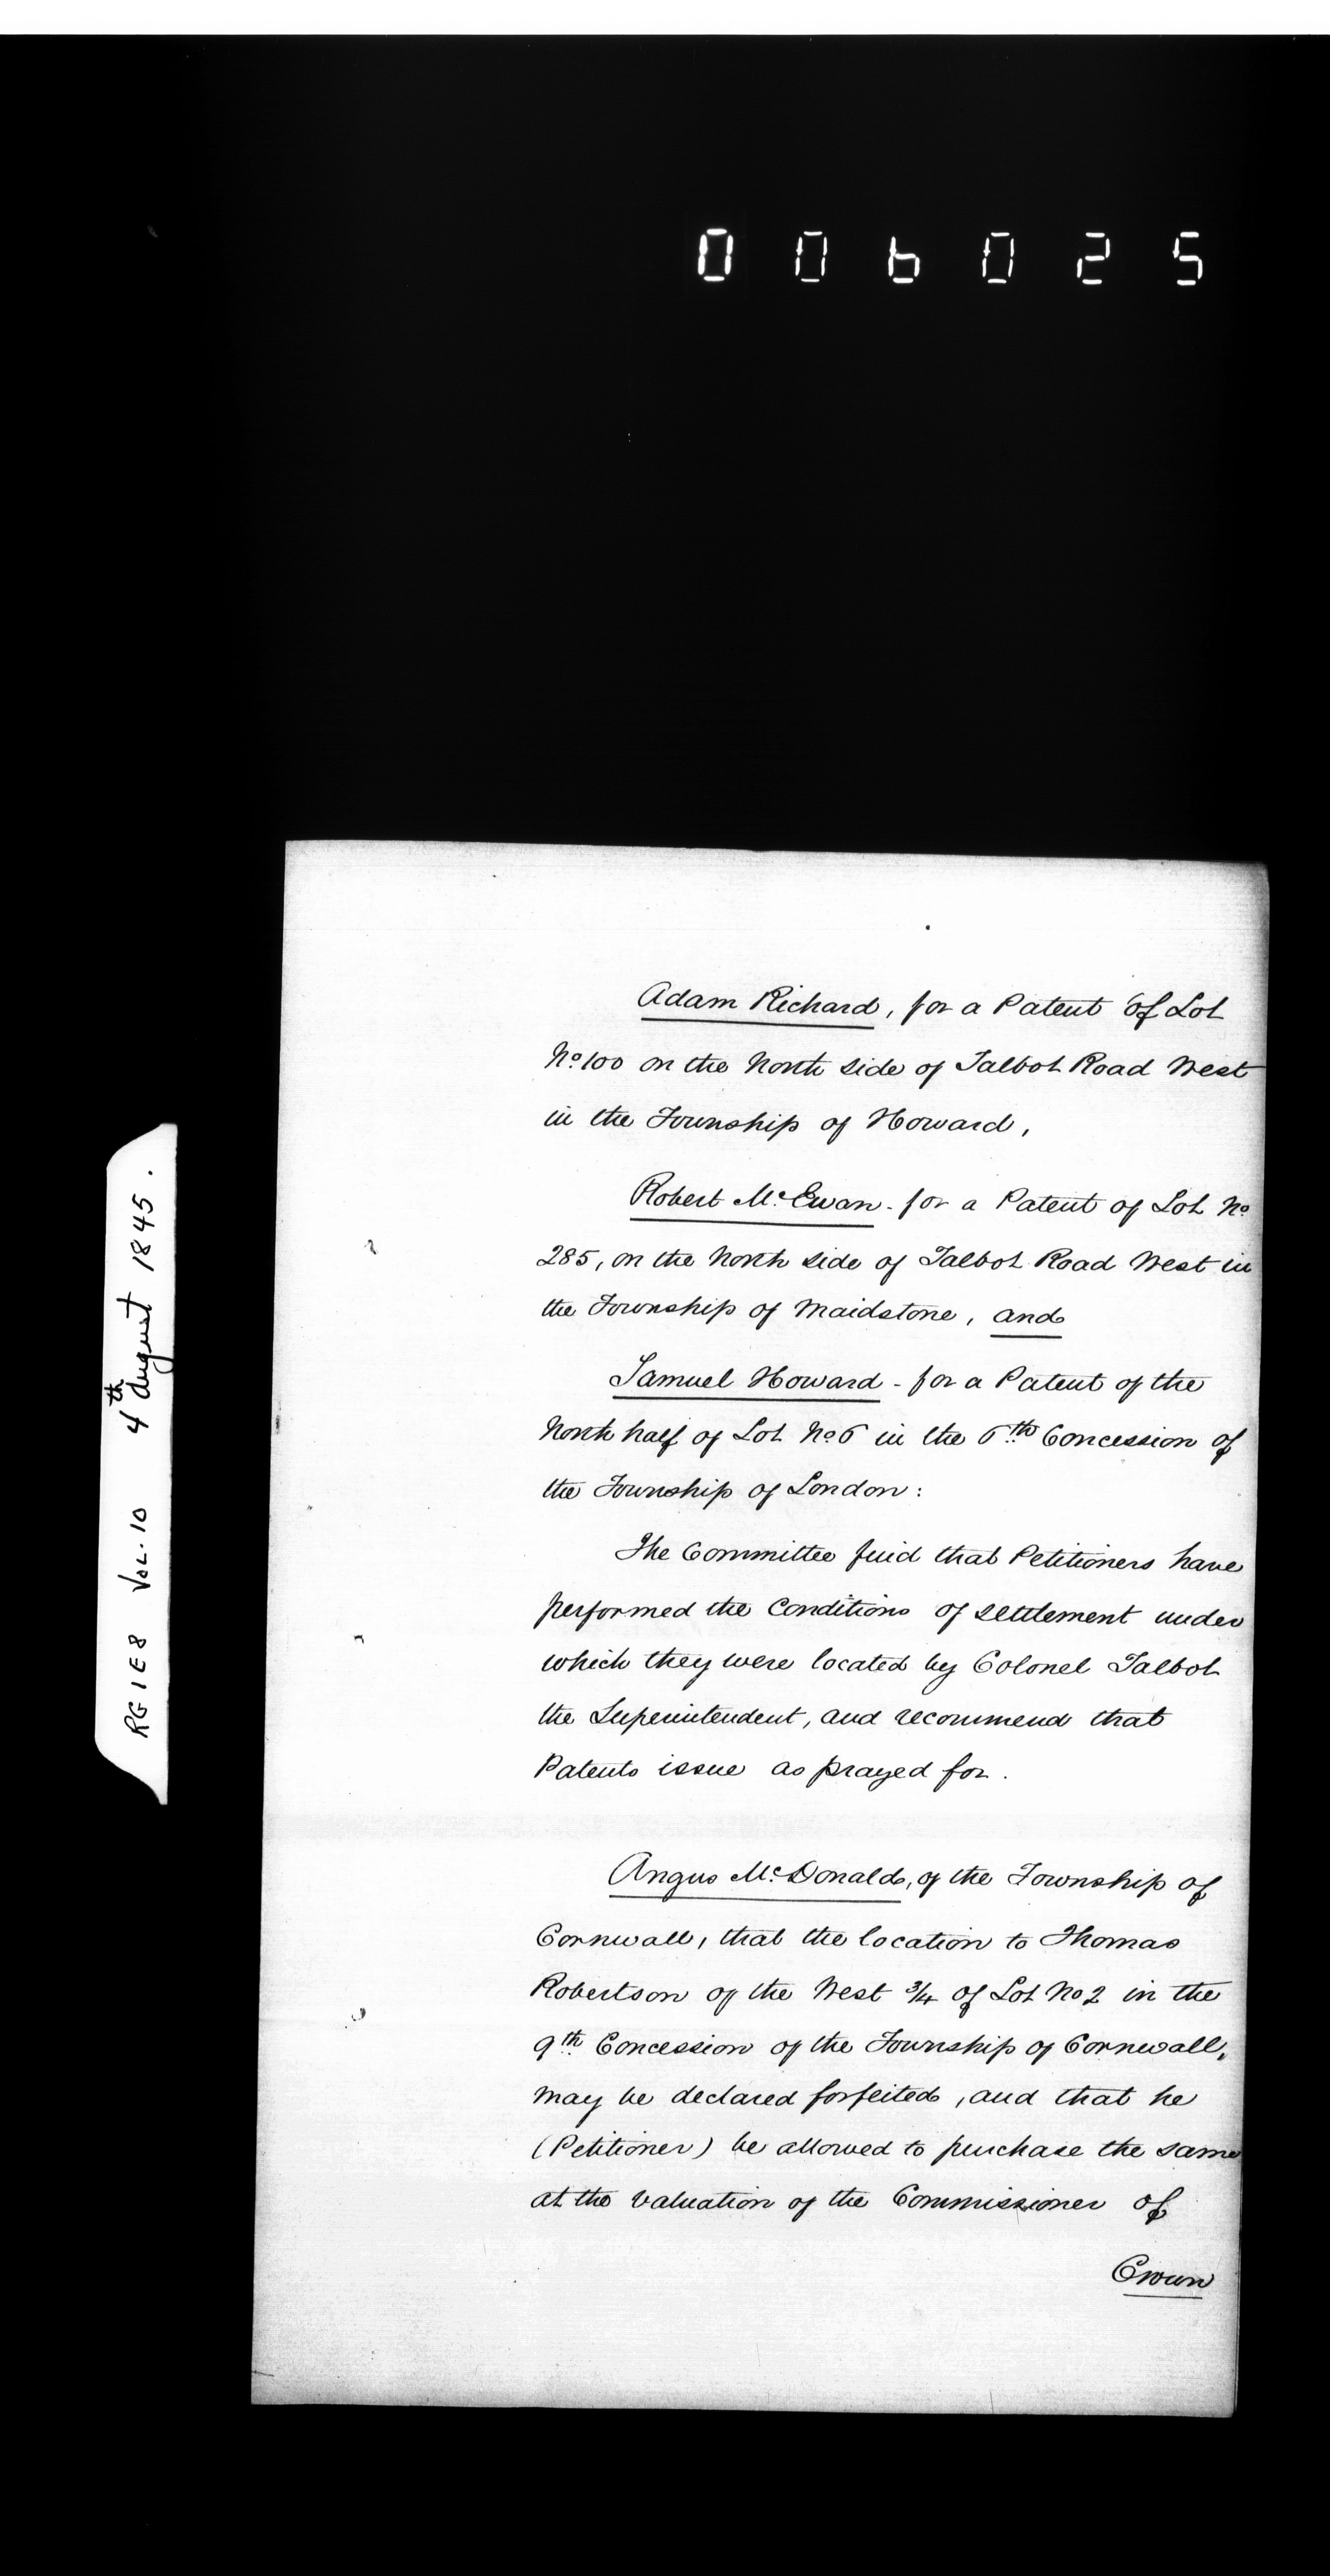 006025
RG 1 E8 VOL. 10 4th August 1845.
Adam Richard, for a Patent of Lot
No. 100 on the North side of Talbot Road West
in the Township of Howard,
Robert McEwan - for a Patent of Lot No
285, on the North side of Talbot Road West in
the Township of Maidstone, and
Samuel Howard - for a Patent of the
North half of Lot No 6 in the 6th Concession of
the Township of London:
The Committee find that Petitioners have
performed the Conditions of settlement under
which they were located by Colonel Talbot
the Superintendent, and recommend that
Patents issue as prayed for.
Angus McDonald, of the Township of
Cornwall, that the location to Thomas
Robertson of the West 3/4 of Lot No 2 in the
9th Concession of the Township of Cornwall,
may be declared forfeited, and that he
(Petitioner) be allowed to purchase the same
at the valuation of the Commissioner of
Crown